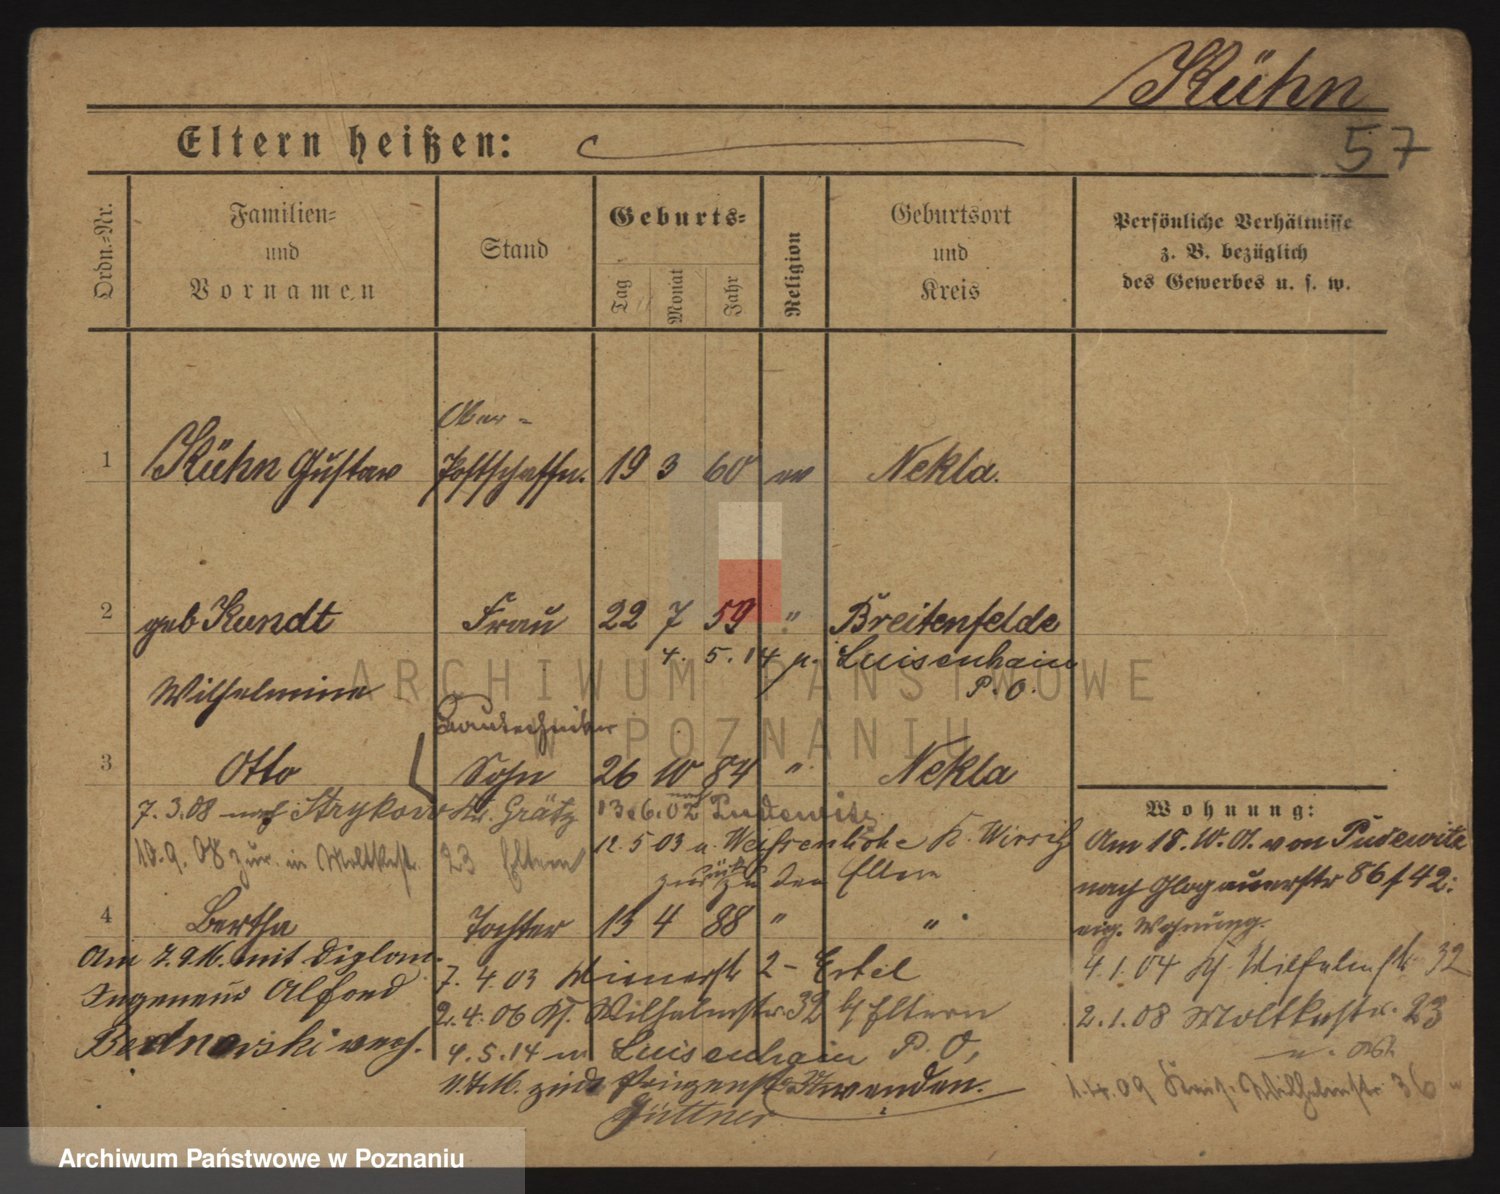 Kühn
57
Eltern heißen:
Ordn.-Nr.
Familien-
und
Vornamen
Stand
Geburts-
Tag
Monat
Jahr
Religion
Geburtsort
und
Kreis
Persönliche Verhältnisse
z. B. bezüglich
des Gewerbes u. s. w.
Ober-
1 Kühn Gustav Postschaffn. 19 3 60 ev Nekla.
2 geb Kundt Frau 22 7 59 " Breitenfelde
4. 5. 14 n. Luisenhain
P. O.
Wilhelmine
Bautechniker
3 Otto Sohn 26 10 84 " Nekla
7.3.08 nach Strykowo Kr. Grätz 13.6.02 nach Pudewitz
12.5.03 n. Weißenhöhe K. Wirsitz
10.9.08 zur. in Moltkestr. 23 Eltern
zurück zu den Eltern
4 Bertha Tochter 15 4 88 " "
Am 7.9.16. mit Diplom.
Ingeneur Alfred
Bednarski verh.
7.4.03 Wienerstr 2 - Ertel
2.4.06 Kf. Wilhelmstr. 32 b/ Eltern
4.5.14 n Luisenhain P. O,
Prinzenstr
wenden.
Güttner
Wohnung:
Am 18.10.01. von Pudewitz
nach Glogauerstr 86 f 42:
eig. Wohnung.
4.1.04 Kf. Wilhelmstr 32
2.1.08 Moltkestr. 23
1.4.09 Wilhelmstr 36
ARCHIWUM PAŃSTWOWE
W POZNANIU
Archiwum Państwowe w Poznaniu